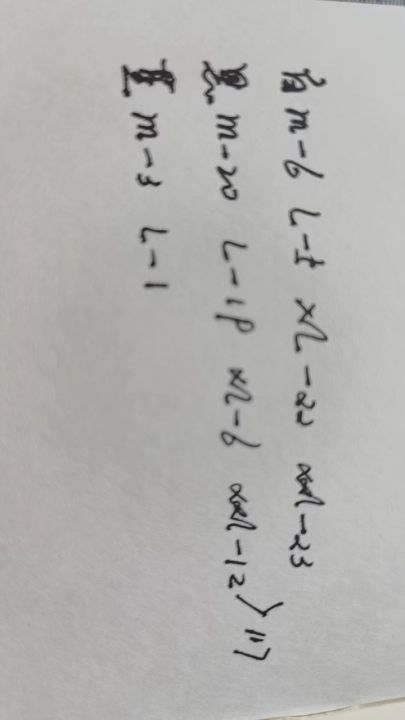 m-6 L-5 XL-22 XXL-23
黑 m-20 XL-6 XXL-12 117
m-3 L-1